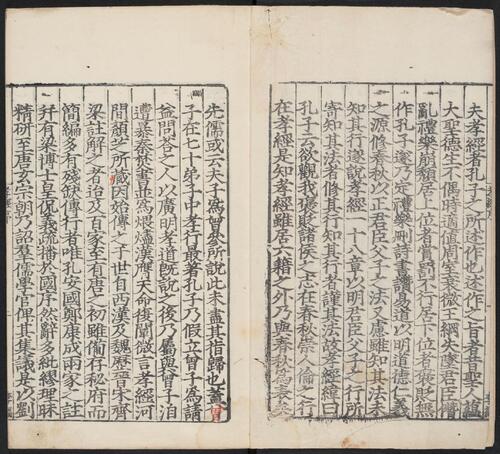 夫孝經者孔子之所述作也述作之旨者昔聖人蘊
大聖德生不偶時適值周室衰微王綱失墜君臣僭
亂禮樂崩頹居上位者賞罰不行居下位者褒貶無
作孔子遂乃定禮樂刪詩書讚易道以明道德仁義
之源修春秋以正君臣父子之法又慮雖知其法未
知其行遂說孝經一十八章以明君臣父子之行所
寄知其法者修其行知其行者謹其法故孝經緯曰
孔子云欲觀我褒貶諸侯之志在春秋崇人倫之行
在孝經是知孝經雖居六籍之外乃與春秋為表矣
先儒或云夫子為曾參所說此未盡其指歸也蓋曾
子在七十弟子中孝行最著孔子乃假立曾子為請
益問答之人以廣明孝道既說之後乃屬與曾子洎
遭暴秦焚書並為煨燼漢膺天命復闡微言孝經河
間顏芝所藏因始傳之于世自西漢及魏歷晉宋齊
梁註解之者迨及百家至有唐之初雖備存秘府而
簡編多有殘缺傳行者唯孔安國鄭康成兩家之註
幷有梁博士皇侃義疏播於國序然辭多紕繆理昧
精研至唐玄宗朝乃詔羣儒學官俾其集議是以劉